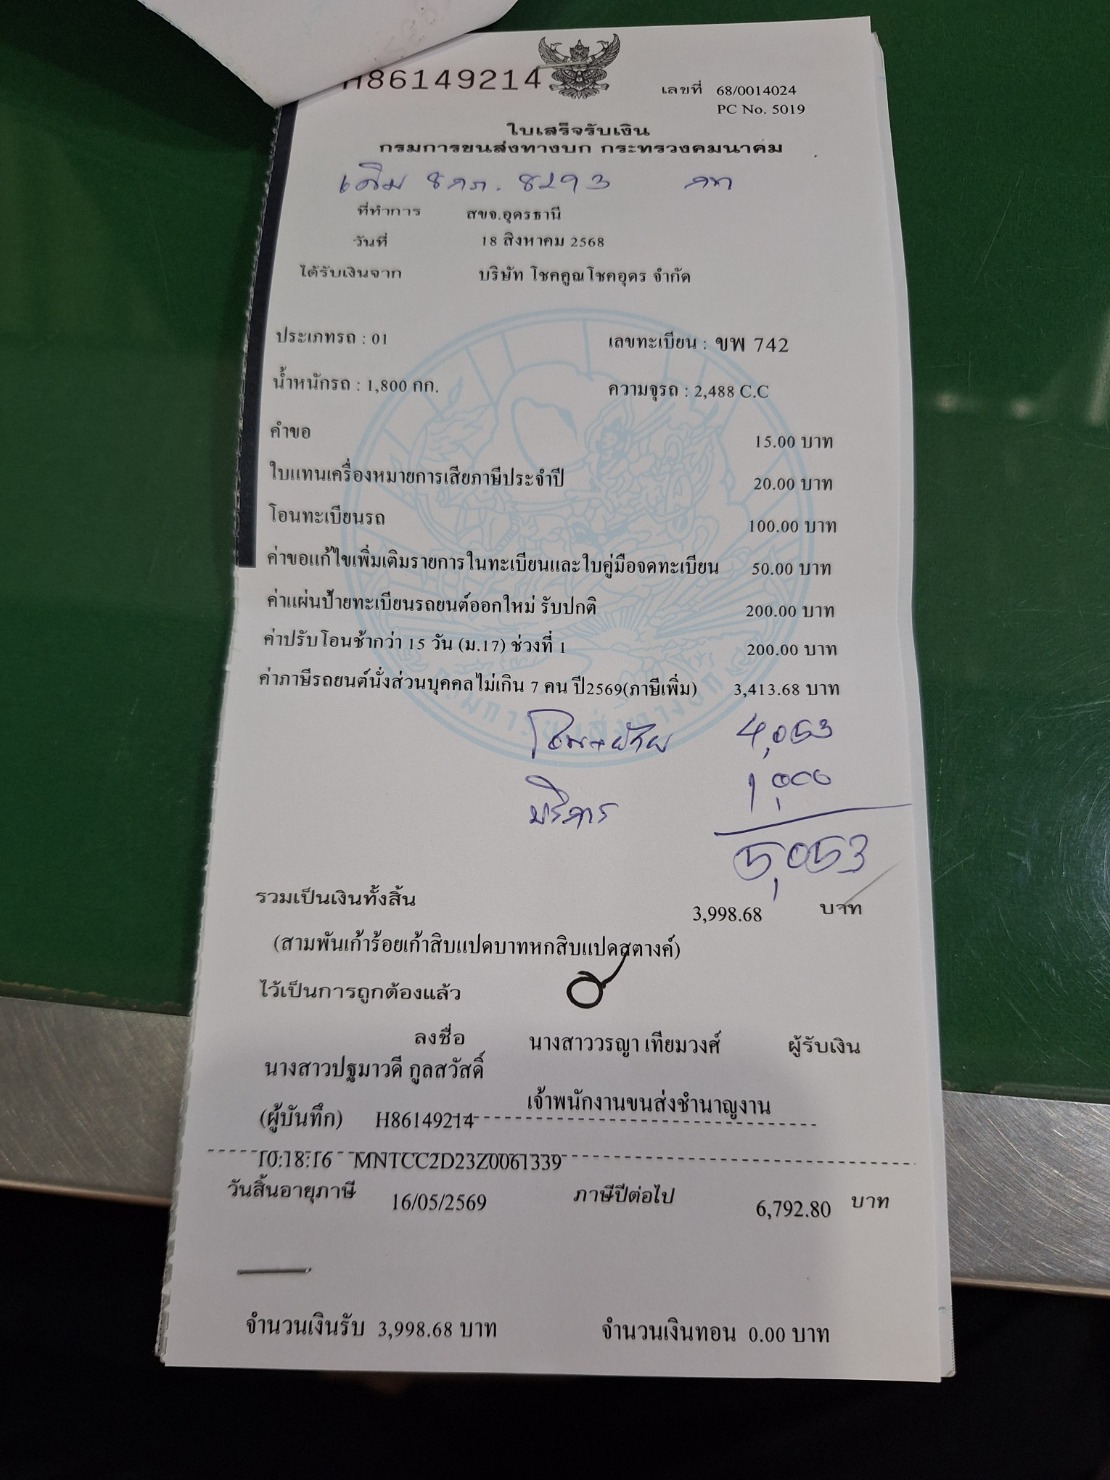 H86149214
เลขที่ 68/0014024
PC No. 5019
ใบเสร็จรับเงิน
กรมการขนส่งทางบก กระทรวงคมนาคม
เดิม 8กก. 8293 กท
ที่ทำการ สขจ.อุดรธานี
วันที่ 18 สิงหาคม 2568
ได้รับเงินจาก บริษัท โชคคูณโชคอุดร จำกัด
ประเภทรถ : 01 เลขทะเบียน : ขพ 742
น้ำหนักรถ : 1,800 กก. ความจุรถ : 2,488 C.C
คำขอ 15.00 บาท
ใบแทนเครื่องหมายการเสียภาษีประจำปี 20.00 บาท
โอนทะเบียนรถ 100.00 บาท
ค่าขอแก้ไขเพิ่มเติมรายการในทะเบียนและใบคู่มือจดทะเบียน 50.00 บาท
ค่าแผ่นป้ายทะเบียนรถยนต์ออกใหม่ รับปกติ 200.00 บาท
ค่าปรับโอนช้ากว่า 15 วัน (ม.17) ช่วงที่ 1 200.00 บาท
ค่าภาษีรถยนต์นั่งส่วนบุคคลไม่เกิน 7 คน ปี2569(ภาษีเพิ่ม) 3,413.68 บาท
โอน+ย้าย 4,053
บริการ 1,000
5,053
รวมเป็นเงินทั้งสิ้น 3,998.68 บาท
(สามพันเก้าร้อยเก้าสิบแปดบาทหกสิบแปดสตางค์)
ไว้เป็นการถูกต้องแล้ว
ลงชื่อ นางสาววรญา เทียมวงศ์ ผู้รับเงิน
นางสาวปฐมาวดี กูลสวัสดิ์
เจ้าพนักงานขนส่งชำนาญงาน
(ผู้บันทึก) H86149214
10:18:16 MNTCC2D23Z0061339
วันสิ้นอายุภาษี 16/05/2569 ภาษีปีต่อไป 6,792.80 บาท
จำนวนเงินรับ 3,998.68 บาท จำนวนเงินทอน 0.00 บาท